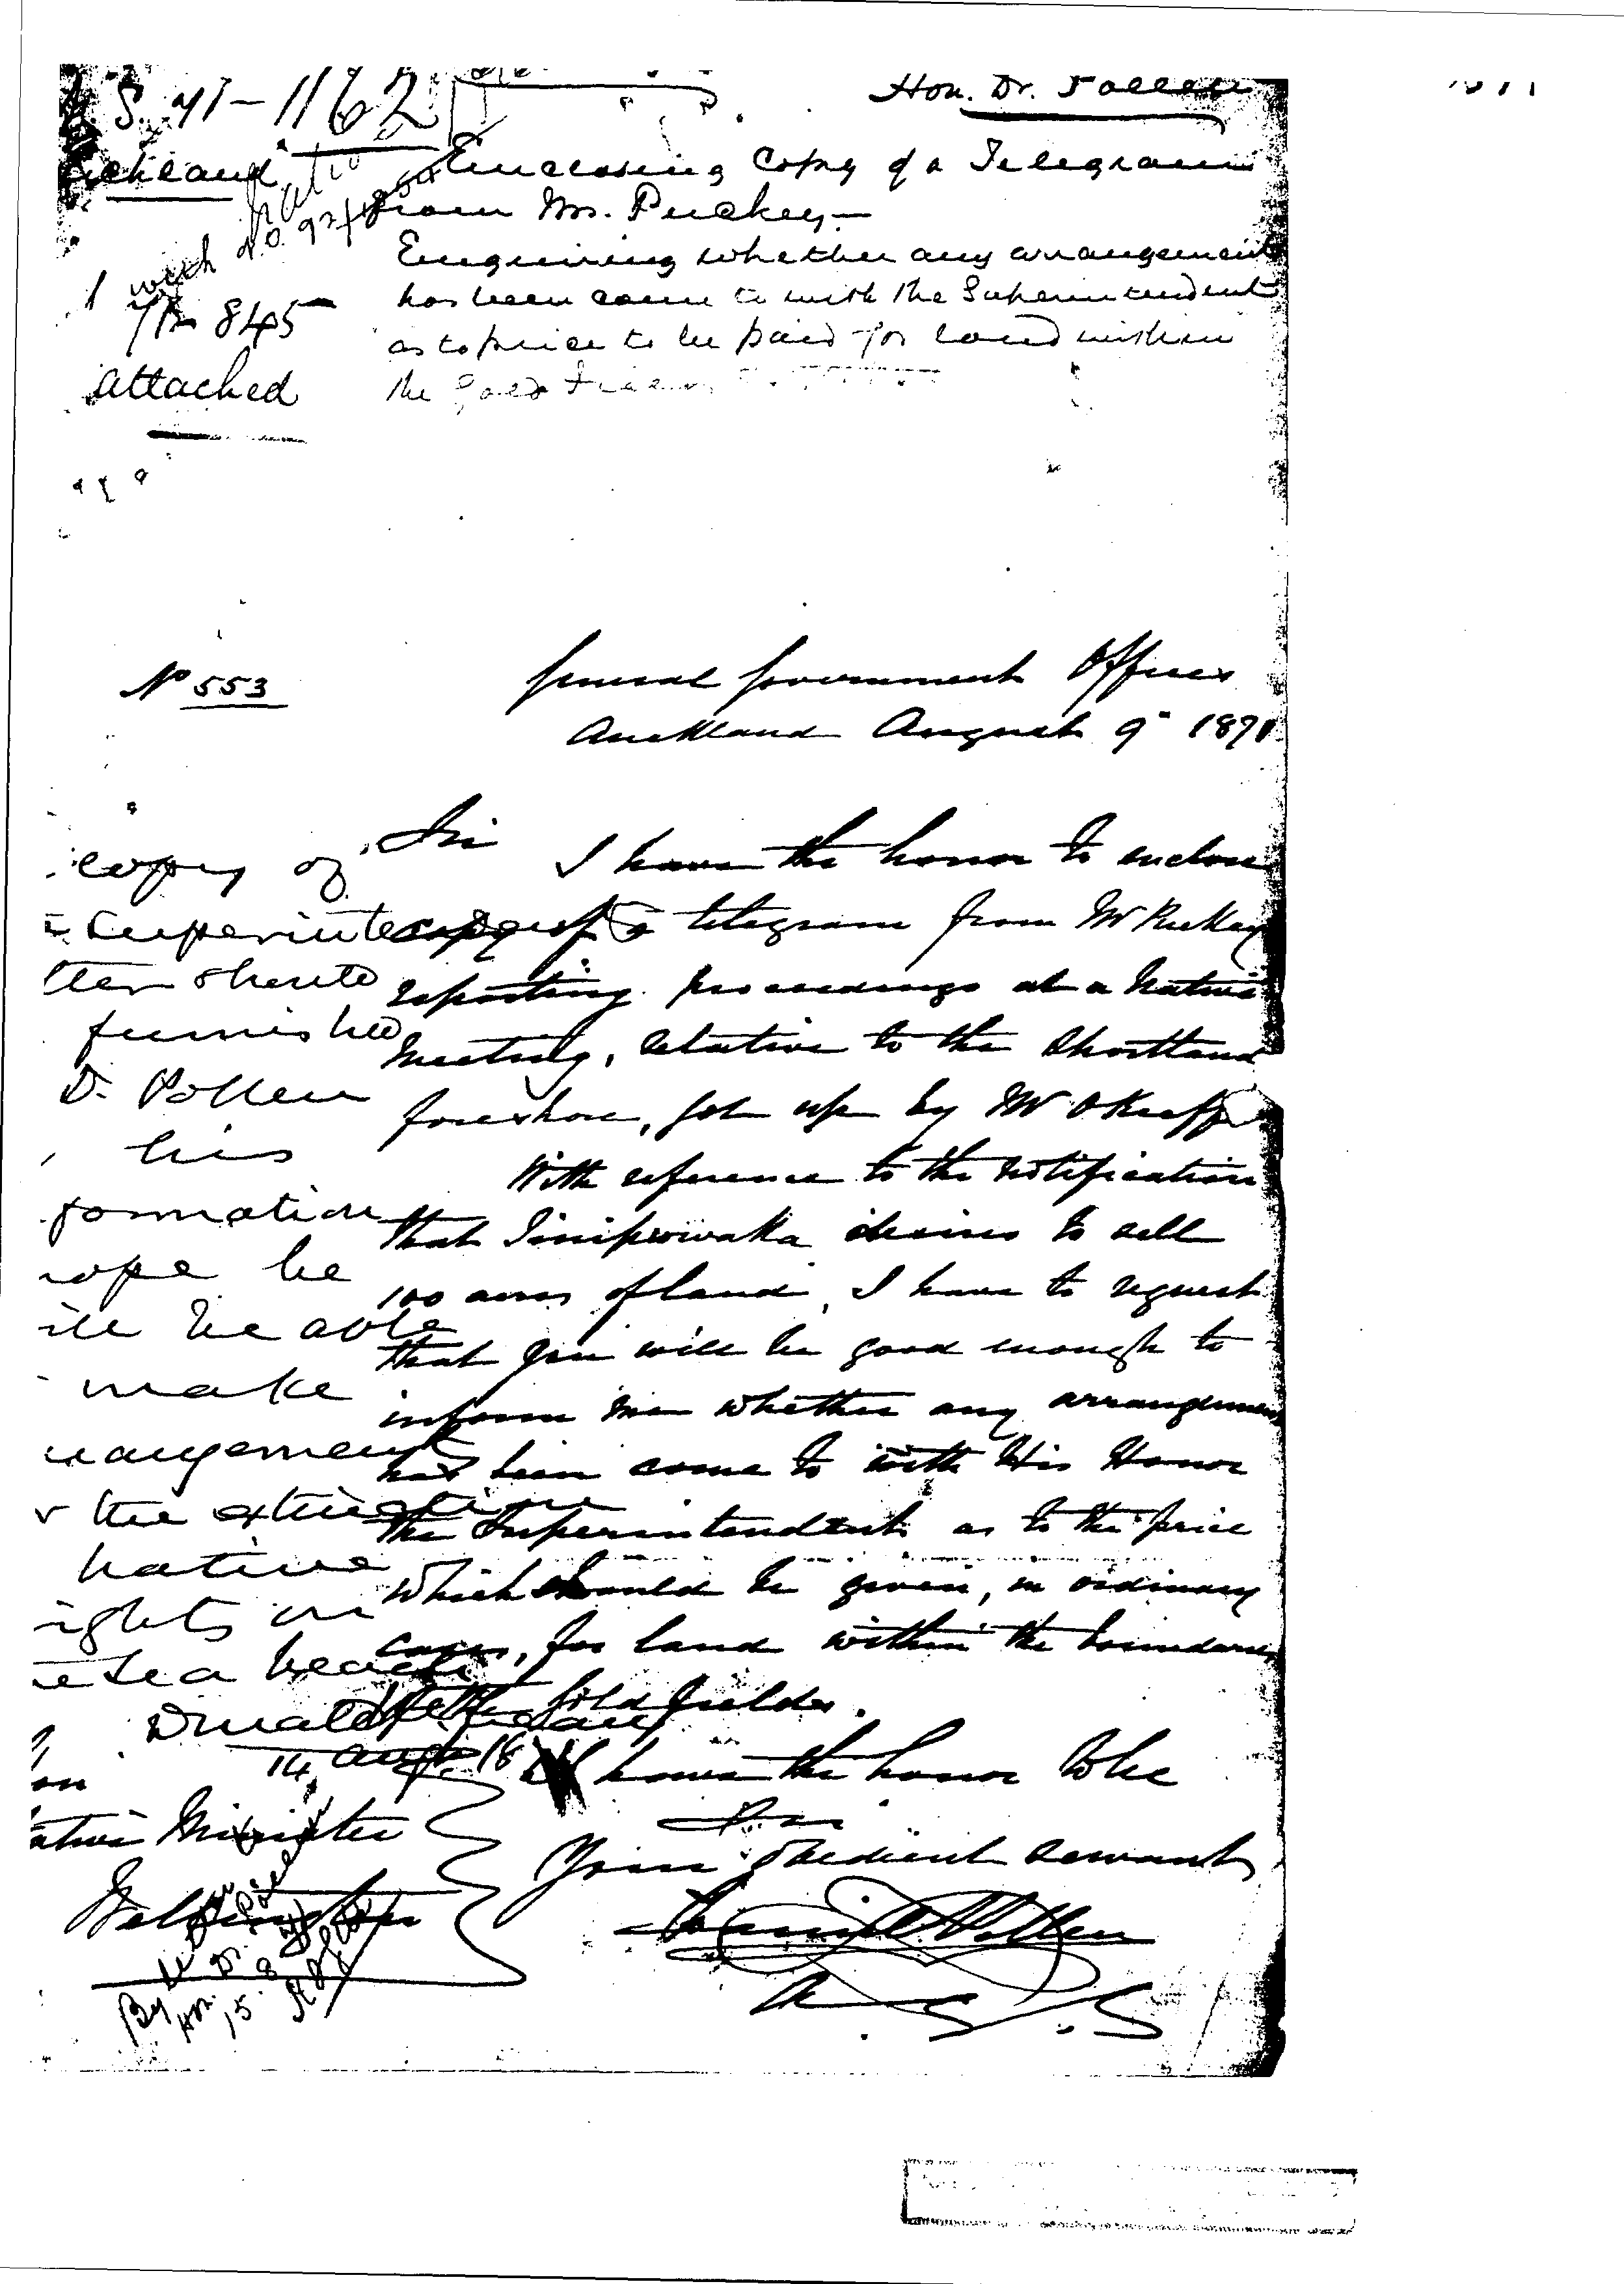 71-1162
Hon. Dr. Pollen
Auckland
Enclosing Copy of a Telegram
from Mr. Puckey—
Enquiring whether any arrangement
has been come to with the Superintendent
as to price to be paid for land within
the Gold Fields
1 with
845
attached
No 553
General Government Offices
Auckland August 9th 1871
Sir I have the honor to enclose
copy of a telegram from Mr Puckey
reporting proceedings at a Native
Meeting, relative to the Shortland
foreshore, got up by Mr O'Keeffe
With reference to the notification
that desires to sell
100 acres of land, I have to request
that you will be good enough to
inform me whether any arrangement
has been come to with His Honor
the Superintendent as to the price
which should be given, in ordinary
cases, for land within the boundaries
of the Gold fields.
I have the honor to be
Sir
Your obedient servant
Daniel Pollen
copy of
Superinte
tter should
furnished
D. Pollen
his
formation
hope he
ill be able
make
rangement
r the extinction
native
ights in
e sea beach
Donald McLean
14 Aug 18
on
ative Minister
Wellington
By
Hon. Dr.
15. 8.